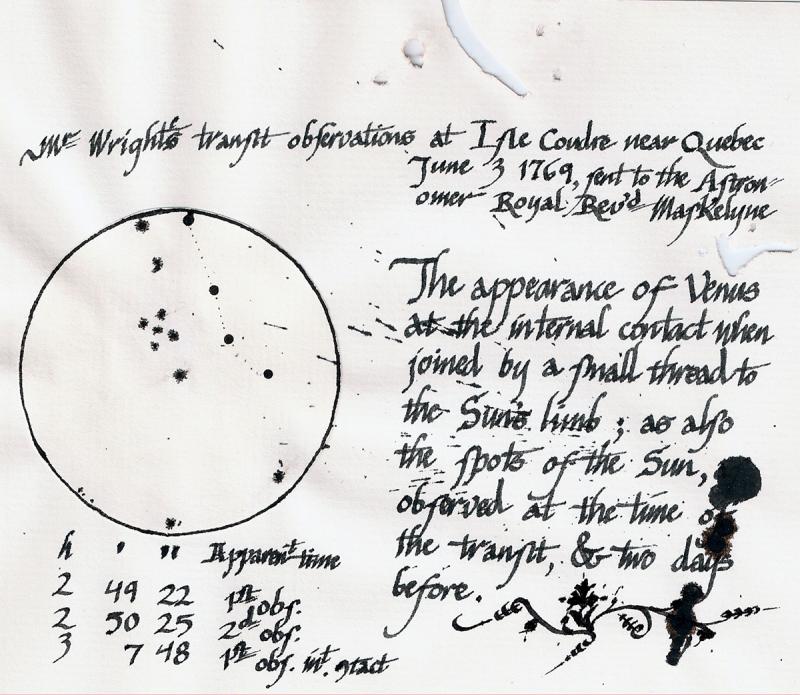 Mr Wright's tranſit obſervations at Iſle Coudre near Quebec
June 3 1769, ſent to the Aſtron-
omer Royal Rev'd Maskelyne
The appearance of Venus
at the internal contact when
joined by a ſmall thread to
the Sun's limb; as alſo
the ſpots of the Sun,
obſerved at the time of
the tranſit, & two days
before.
h ' " Apparent time
2 49 22 1st obſ.
2 50 25 2d obſ.
3 7 48 1st obſ. int. ctact